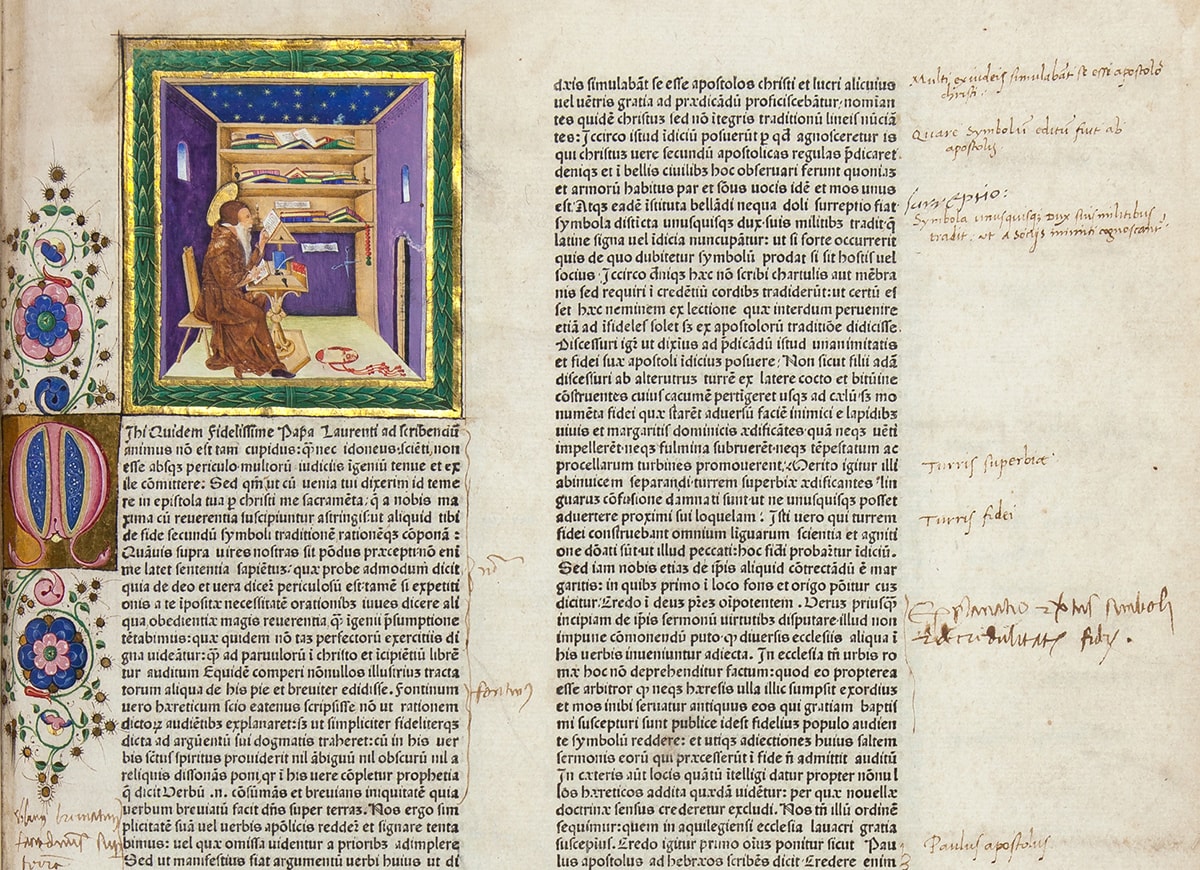 Ihi Quidem Fidelissime Papa Laurenti ad scribenciū
animus nō est tam cupidus: q̄ nec idoneus: sciēti, non
esse absq; periculo multorū iudiciis īgeniū tenue et ex
ile cōmittere: Sed qm̄ ut cū venia tui dixerim id teme
re in epistola tua ꝑ christi me sacramēta: q̄ a nobis ma
xima cū reverentia suscipiuntur astringis: ut aliquid tibi
de fide secundū symboli traditionē rationēq; cōponā:
Quāuis supra uires nostras sit pōdus præcepti: nō eni
me latet sententia sapiētū: quæ probe admodum dicit
quia de deo et vera dicer̄ periculosū est: tamē si expetiti
onis a te īpositæ necessitatē orationibus iuues dicere ali
qua, obedientiæ magis reuerentia, q̄ īgenii p̄sumptione
tētabimus: quæ quidem nō tās perfectorū exercitiis di
gna videātur: q̄ ad paruulorū ī christo et īcipiētiū librē
tur auditum Equidē comperi nōnullos illustriū tracta
torum aliqua de his pie et breuiter edidisse. Fontinum
vero hæreticum scio eatenus scripsisse nō ut rationem
dictoꝝ audiētibus explanaret: sꝫ ut simpliciter fideliterq;
dicta ad argūentū sui dogmatis traheret: cū in his ver
bis sc̄tus spiritus prouiderit nil ābiguū nil obscurū nil a
reliquis dissonās poni, qꝛ ī his vere cōpletur prophetia
q̄ dicit Verbū .n. cōsūmās et brevians in equitate quia
verbum breuiatū faciet dn̄s super terraꝫ. Nos ergo sim
plicitatē suā vel verbis apōlicis redder̄ et signare tenta
bimus: vel quæ omissa videntur a prioribꝰ adimplere
Sed ut manifestius fiat argumētū verbi huius ut di
dæis simulabāt se esse apostolos christi et lucri alicuius
uel uētris gratia ad prædicādū proficiscebātur: nomiān
tes quidē christus sed nō ītegris traditionū lineis nūciā
tes: Iccirco istud īdiciū posuerūt ꝑ qđ agnosceretur is
qui christus uere secundū apostolicas regulas p̄dicaret
deniq; et ī bellis ciuilibꝫ hoc observari ferunt quoniaꝫ
et armorū habitus par et sōus uocis idē et mos unus
est. Atq; eadē īstituta bellādi nequa doli surreptio fiat
symbola distīcta unusquisq; dux suis militibꝫ tradit: q̄
latine signa vel īdicia nuncupātur: ut si forte occurrerit
quis de quo dubitetur symbolū prodat si sit hostis vel
socius. Iccirco dīq; hæc nō scribi chartulis aut mēbra
nis sed requiri ī credētiū cordibꝫ tradiderūt: ut certū es
set hæc neminem ex lectione quæ interdum peruenire
etiā ad īfideles solet sꝫ ex apostolorū traditiōe didicisse.
Discessuri igr̄ ut diximꝰ ad p̄dicādū istud unanimitatis
et fidei suæ apostoli īdiciuꝫ posuere. Non sicut filii adā
discessuri ab alterutruꝫ turrē ex latere cocto et bitūine
cōstruentes cuius cacumē pertigeret usq; ad cælū: sꝫ mo
numēta fidei quæ starēt adversū faciē inimici e lapidibꝫ
uiuis et margaritis dominicis ædificātes: quā neq; vēti
impellerēt: neq; fulmina subruerēt: neq; tēpestatum ac
procellarum turbines promouerent. Merito igitur illi
abinuicem separandi: turrem superbiæ ædificantes līn
guarum cōfusione damnati sunt: ut ne unusquisq; posset
advertere proximi sui loquelam. Isti vero qui turrem
fidei construebant omnium līguarum scientia et agniti
one dōati sūt: ut illud peccati: hoc fidei probaret̄ īdiciū.
Sed iam nobis etiaꝫ de ip̄is aliquid cōtrectādū ē mar
garitis: in quibꝫ primo ī loco fons et origo pōitur cuꝫ
dicitur. Credo ī deuꝫ pr̄eꝫ oīpotentem. Verꝫ priusq̄
incipiam de ip̄is sermonū virtutibꝫ disputare illud non
impune cōmonendū puto q̄ diversis ecclesiis aliqua ī
his verbis inveniuntur adiecta. In ecclesia tn̄ urbis ro
mæ hoc nō deprehenditur factum: quod eo propterea
esse arbitror q̄ neq; hæresis ulla illic sumpsit exordiuꝫ
et mos inibi seruatur antiquus eos qui gratiam baptis
mi suscepturi sunt publice idest fidelium populo audien
te symbolū reddere: et utiq; adiectiones huius saltem
sermonis eorū qui præcesserūt ī fide n̄ admittit auditū
In cæteris aūt locis quātū ītelligi datur propter nōnul
los hæreticos addita quædā vidētur: per quæ nouellæ
doctrinæ sensus crederetur excludi. Nos tn̄ illū ordinē
sequimur: quem in aquilegiensi ecclesia lauacri gratia
suscepimꝰ. Credo igitur primo oīuꝫ ponitur sicut Pau
lus apostolus ad hebræos scribēs dicit Credere enim
Multi ex iudeis simulabāt se esse apostolos
christi.
Quare Symbolū editū fiut ab
apostolis
surreptio:
Symbola unusquisq; Dux suis militibus
tradit, ut a socijs inimici cognoscant̄
Turris superbiæ
Turris fidei
Explanatio symboli
credulitat fidei.
Paulus apostolus
fontinꝰ